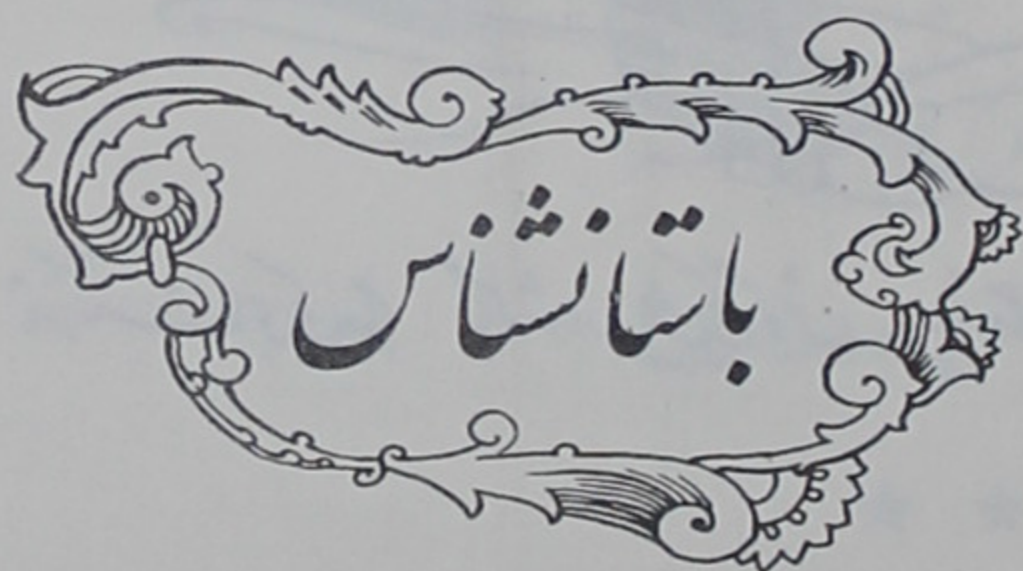 باستانشناس